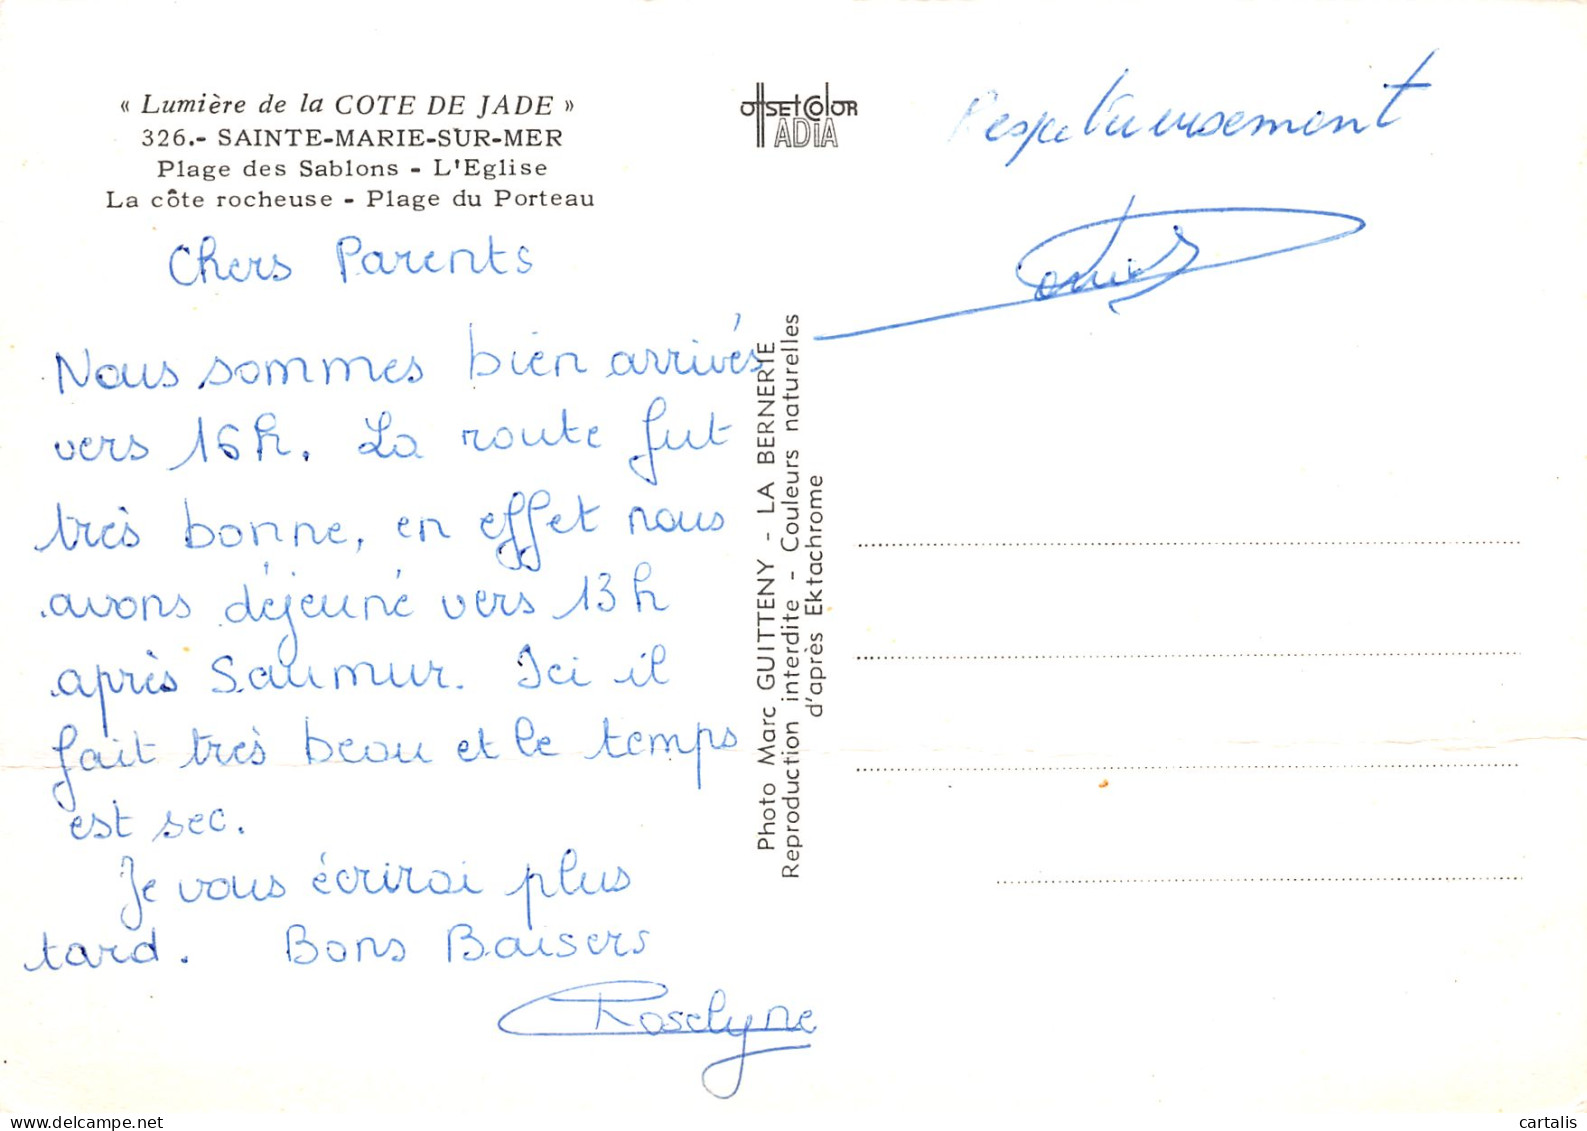 « Lumière de la COTE DE JADE »
326.- SAINTE-MARIE-SUR-MER
Plage des Sablons - L'Eglise
La côte rocheuse - Plage du Porteau
Chers Parents
Nous sommes bien arrivés
vers 16h. La route fut
très bonne, en effet nous
avons déjeuné vers 13h
après Saumur. Ici il
fait très beau et le temps
est sec.
Je vous écrirai plus
tard. Bons Baisers
Roselyne
OffsetColor
ADIA
Photo Marc GUITTENY - LA BERNERIE
Reproduction interdite - Couleurs naturelles
d'après Ektachrome
Respectueusement
cartalis
www.delcampe.net